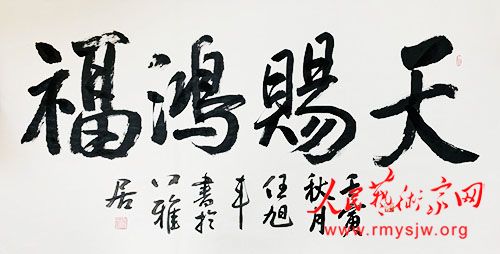 天賜鴻福
秋月
任旭
書於
雅
居
人民藝術家网
www.rmysjw.org